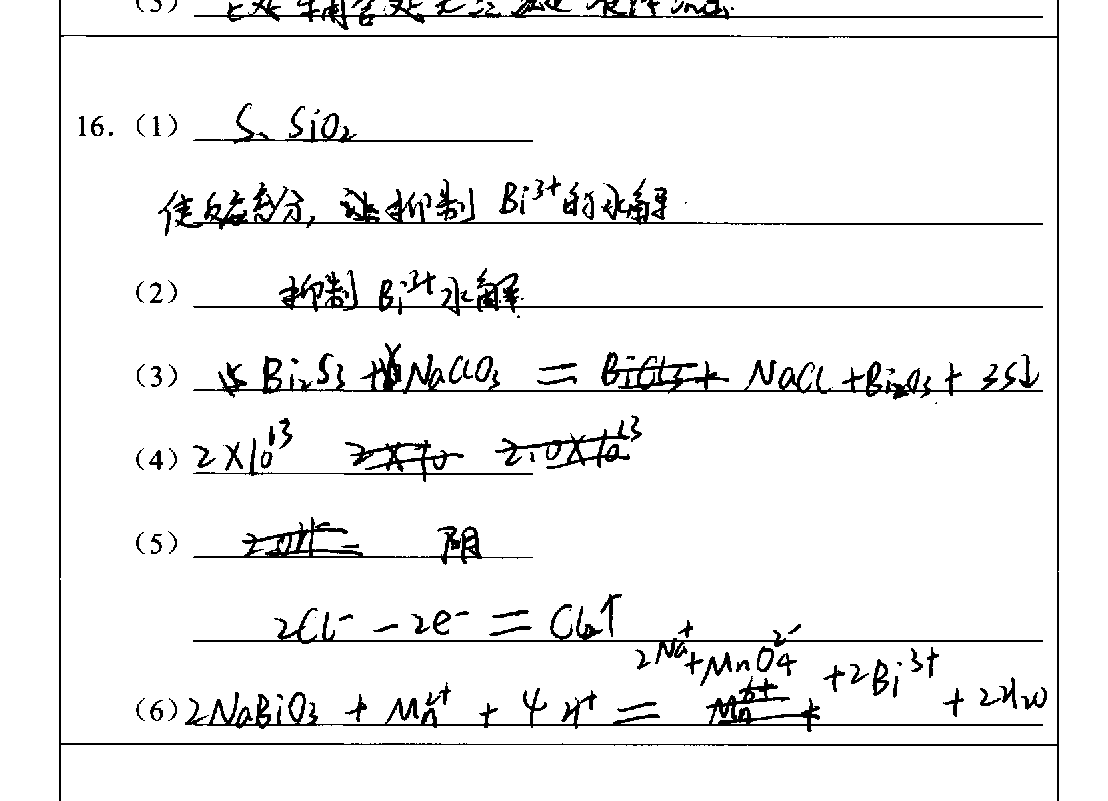 (3)
16. (1) S、SiO₂
使反应充分, 抑制 Bi³⁺的水解
(2) 抑制 Bi³⁺水解
(3) Bi₂S₃ + NaClO₃ = NaCl + Bi₂O₃ + 3S↓
(4) 2×10¹³
(5) 阴
2Cl⁻ - 2e⁻ = Cl₂↑
(6) 2NaBiO₃ + Mn²⁺ + 4H⁺ = 2Na⁺ + MnO₄²⁻ + 2Bi³⁺ + 2H₂O